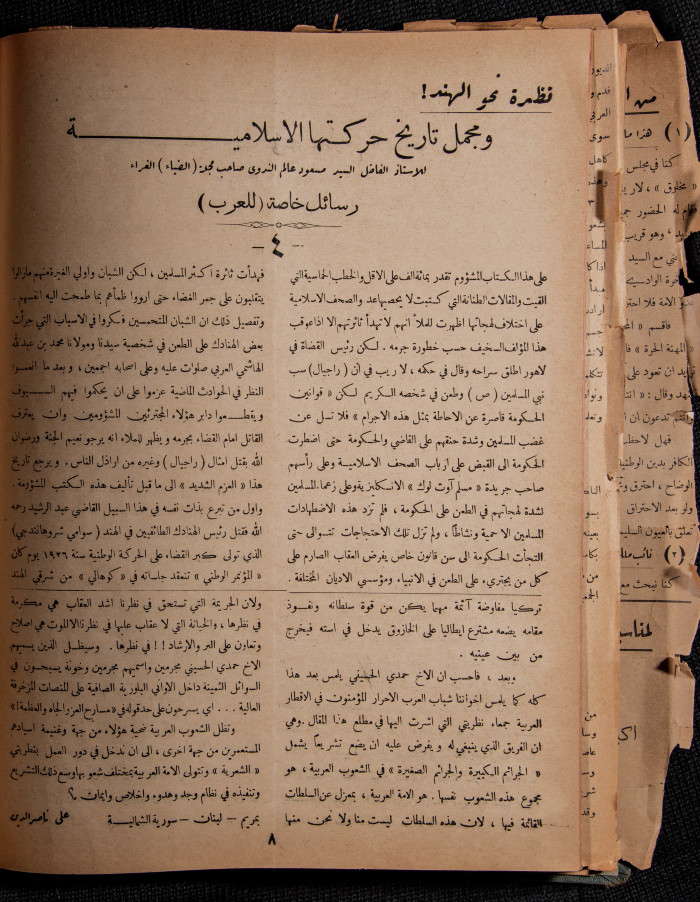 نظرة نحو الهند!
ومجمل تاريخ حركتها الاسلامية
للاستاذ الفاضل السيد مسعود عالم الندوى صاحب مجلة (الضياء) الغراء
رسائل خاصة (للعرب)
- ٤ -
على هذا الكتاب المشؤوم تقدر بمائة الف على الاقل والخطب الحماسية التي
القيت والمقالات الطنانة التي كتبت لا يحصيها عد والصحف الاسلامية
على اختلاف لهجاتها اظهرت للملأ انهم لا تهدأ ثائرتهم الا اذا عوقب
هذا المؤلف السخيف حسب خطورة جرمه . لكن رئيس القضاة في
لاهور اطلق سراحه وقال في حكمه ، لا ريب في ان ( راجبال) سب
نبي المسلمين (ص) وطعن في شخصه الكريم لكن « قوانين
الحكومة قاصرة عن الاحاطة بمثل هذه الاجرام » فلا تسل عن
غضب المسلمين وشدة حنقهم على القاضي والحكومة حتى اضطرت
الحكومة الى القبض على ارباب الصحف الاسلامية وعلى رأسهم
صاحب جريدة « مسلم آوت لوك » الانكليزية وعلى زعماء المسلمين
لشدة لهجاتهم في الطعن على الحكومة ، فلم تزد هذه الاضطهادات
المسلمين الا حمية ونشاطا ، ولم تزل تلك الاحتجاجات تتوالى حتى
التجأت الحكومة الى سن قانون خاص يفرض العقاب الصارم على
كل من يجترىء على الطعن في الانبياء ومؤسسي الاديان المختلفة .
فهدأت ثائرة اكثر المسلمين ، لكن الشبان واولي الغيرة منهم مازالوا
يتقلبون على جمر الغضا حتى ارووا ظمأهم بما طمحت اليه انفسهم .
وتفصيل ذلك ان الشبان المتحمسين فكروا في الاسباب التي جرأت
بعض الهنادك على الطعن في شخصية سيدنا ومولانا محمد بن عبدالله
الهاشمي العربي صلوات عليه وعلى اصحابه اجمعين ، وبعد ما انعموا
النظر في الحوادث الماضية عزموا على ان يحكموا فيهم السيوف
ويقطعوا دابر هؤلاء المجترئين المشؤومين وان يعترف
القاتل امام القضاء بجرمه ويظهر للملاء انه يرجو نعيم الجنة ورضوان
الله بقتل امثال ( راجبال ) وغيره من اراذل الناس . ويرجع تاريخ
هذا « العزم الشديد » الى ما قبل تأليف هذه الكتب المشؤومة .
واول من تبرع بذات نفسه في هذا السبيل القاضي عبد الرشيد رحمه
الله فقتل رئيس الهنادك الطائفيين في الهند ( سوامي شروهانندجي)
الذي تولى كبر القضاء على الحركة الوطنية سنة ١٩٢٦ يوم كان
« المؤتمر الوطني » تنعقد جلساته في « كوهاتي » من شرقي الهند
تركيا مفاوضة آثمة مهما يكن من قوة سلطانه ونفوذ
مقامه يضعه مشترع ايطاليا على الخازوق يدخل في استه فيخرج
من بين عينيه .
وبعد ، فاحسب ان الاخ حمدي الحسيني يلمس بعد هذا
كله كما يلمس اخواننا شباب العرب الاحرار المؤمنون في الاقطار
العربية جمعاء نظريتي التي اشرت اليها في مطلع هذا المقال .وهي
ان الفريق الذي ينبغي له ويفرض عليه ان يضع تشريعاً يشمل
« الجرائم الكبيرة والجرائم الصغيرة » في الشعوب العربية ، هو
مجموع هذه الشعوب نفسها . هو الامة العربية ، بمعزل عن السلطات
القائمة فيها ، لان هذه السلطات ليست منا ولا نحن منها
ولان الجريمة التي تستحق في نظرنا اشد العقاب هي مكرمة
في نظرها ، والخيانة التي لا عقاب عليها في نظرنا الا الموت هي اصلاح
وتعاون على البر والارشاد !! في نظرها . وسيظل الذين يسميهم
الاخ حمدي الحسيني مجرمين واسميهم مجرمين وخونة يسبحون في
السوائل الثمينة داخل الاواني البلورية الصافية على المنصات المزخرفة
العالية ... اي يسرحون على حد قوله في « مسارح العز والجاه والعظمة! »
وتظل الشعوب العربية ضحية هؤلاء من جهة وغنيمة اسيادهم
المستعمرين من جهة اخرى ، الى ان ندخل في دور العمل بنظريتي
« الشعرية » وتتولى الامة العربية بمختلف شعوبها وضع ذلك التشريع
وتنفيذه في نظام وجد وهدوء واخلاص وايمان .؟
بمريم - لبنان - سورية الشمالية علي ناصر الدين
٨